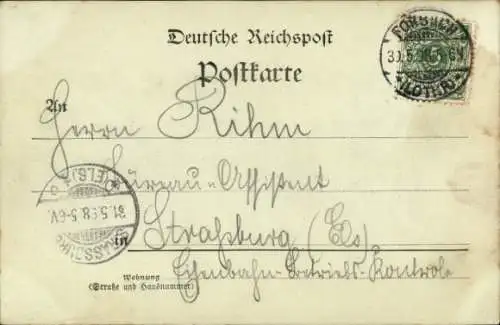 Deutsche Reichspost
Postkarte
FORBACH
30.5.98 5-6N
* (LOTHR) *
5
An
Herrn Rihm
Bureau-Assistent
in Straßburg (Els)
Eisenbahn-Betriebs-Kontrole
STRASSBURG
31.5.98.5-6V.
(ELS)
Wohnung
(Straße und Hausnummer)